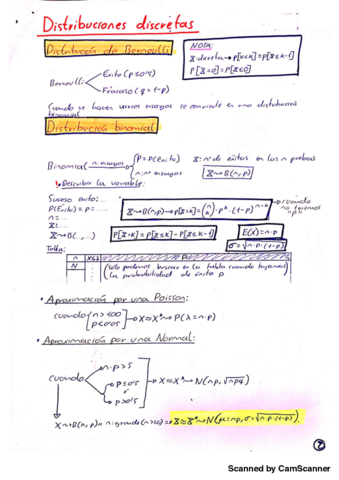 Distribuciones discretas
Distribución de Bernoulli
NOTA:
X: discreta → P[X<k]=P[X≤k-1]
P[X=0]=P[X≤0]
Bernoulli
Éxito (p≤0'5)
Fracaso (q=1-p)
Cuando se hacen varios ensayos se convierte en una distribución
binomial
Distribución binomial
Binomial n:ensayos
p=P(Éxito)
n:nº ensayos
X: nº de éxitos en las n pruebas
X→B(n,p)
Describir la variable:
Suceso éxito:...
P(Éxito)=p=....
n=...
X:...
X→B(...,..)
X→B(n,p)→P[X=k]=(n k)·p^k·(1-p)^n-k
cuando
no tenemos
np
P[X=k]=P[X≤k]-P[X≤k-1]
E(X)=n·p
σ=√n·p·(1-p)
Tabla:
n X≤x p
N
(sólo podemos buscar en la tabla cuando tengamos
la probabilidad de éxito p
• Aproximación por una Poisson:
cuando
n>100
p≤0'5
X≈X*→P(λ=n·p)
• Aproximación por una Normal:
cuando
n·p>5
p≤0'5
o
p>0'5
X≈X*→N(np,√npq)
X→B(n,p) n:grande(n>20)→X≈X*→N(μ=np,σ=√n·p·(1-p))
2
Scanned by CamScanner